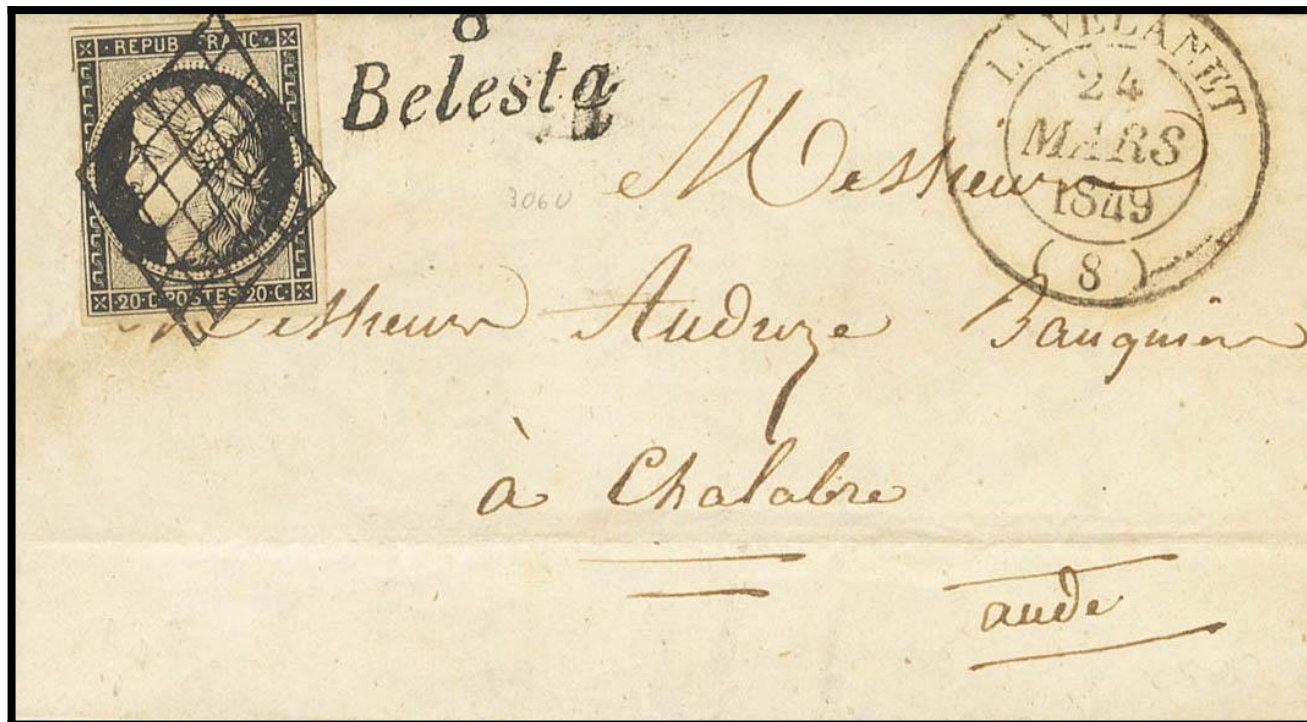 REPUB FRANC
20·C·POSTES·20·C·
8
Belesta
LAVELANET
24
MARS
1849
(8)
3060
Messieurs
Messieurs Audoze Bauquier
à Chalabre
aude